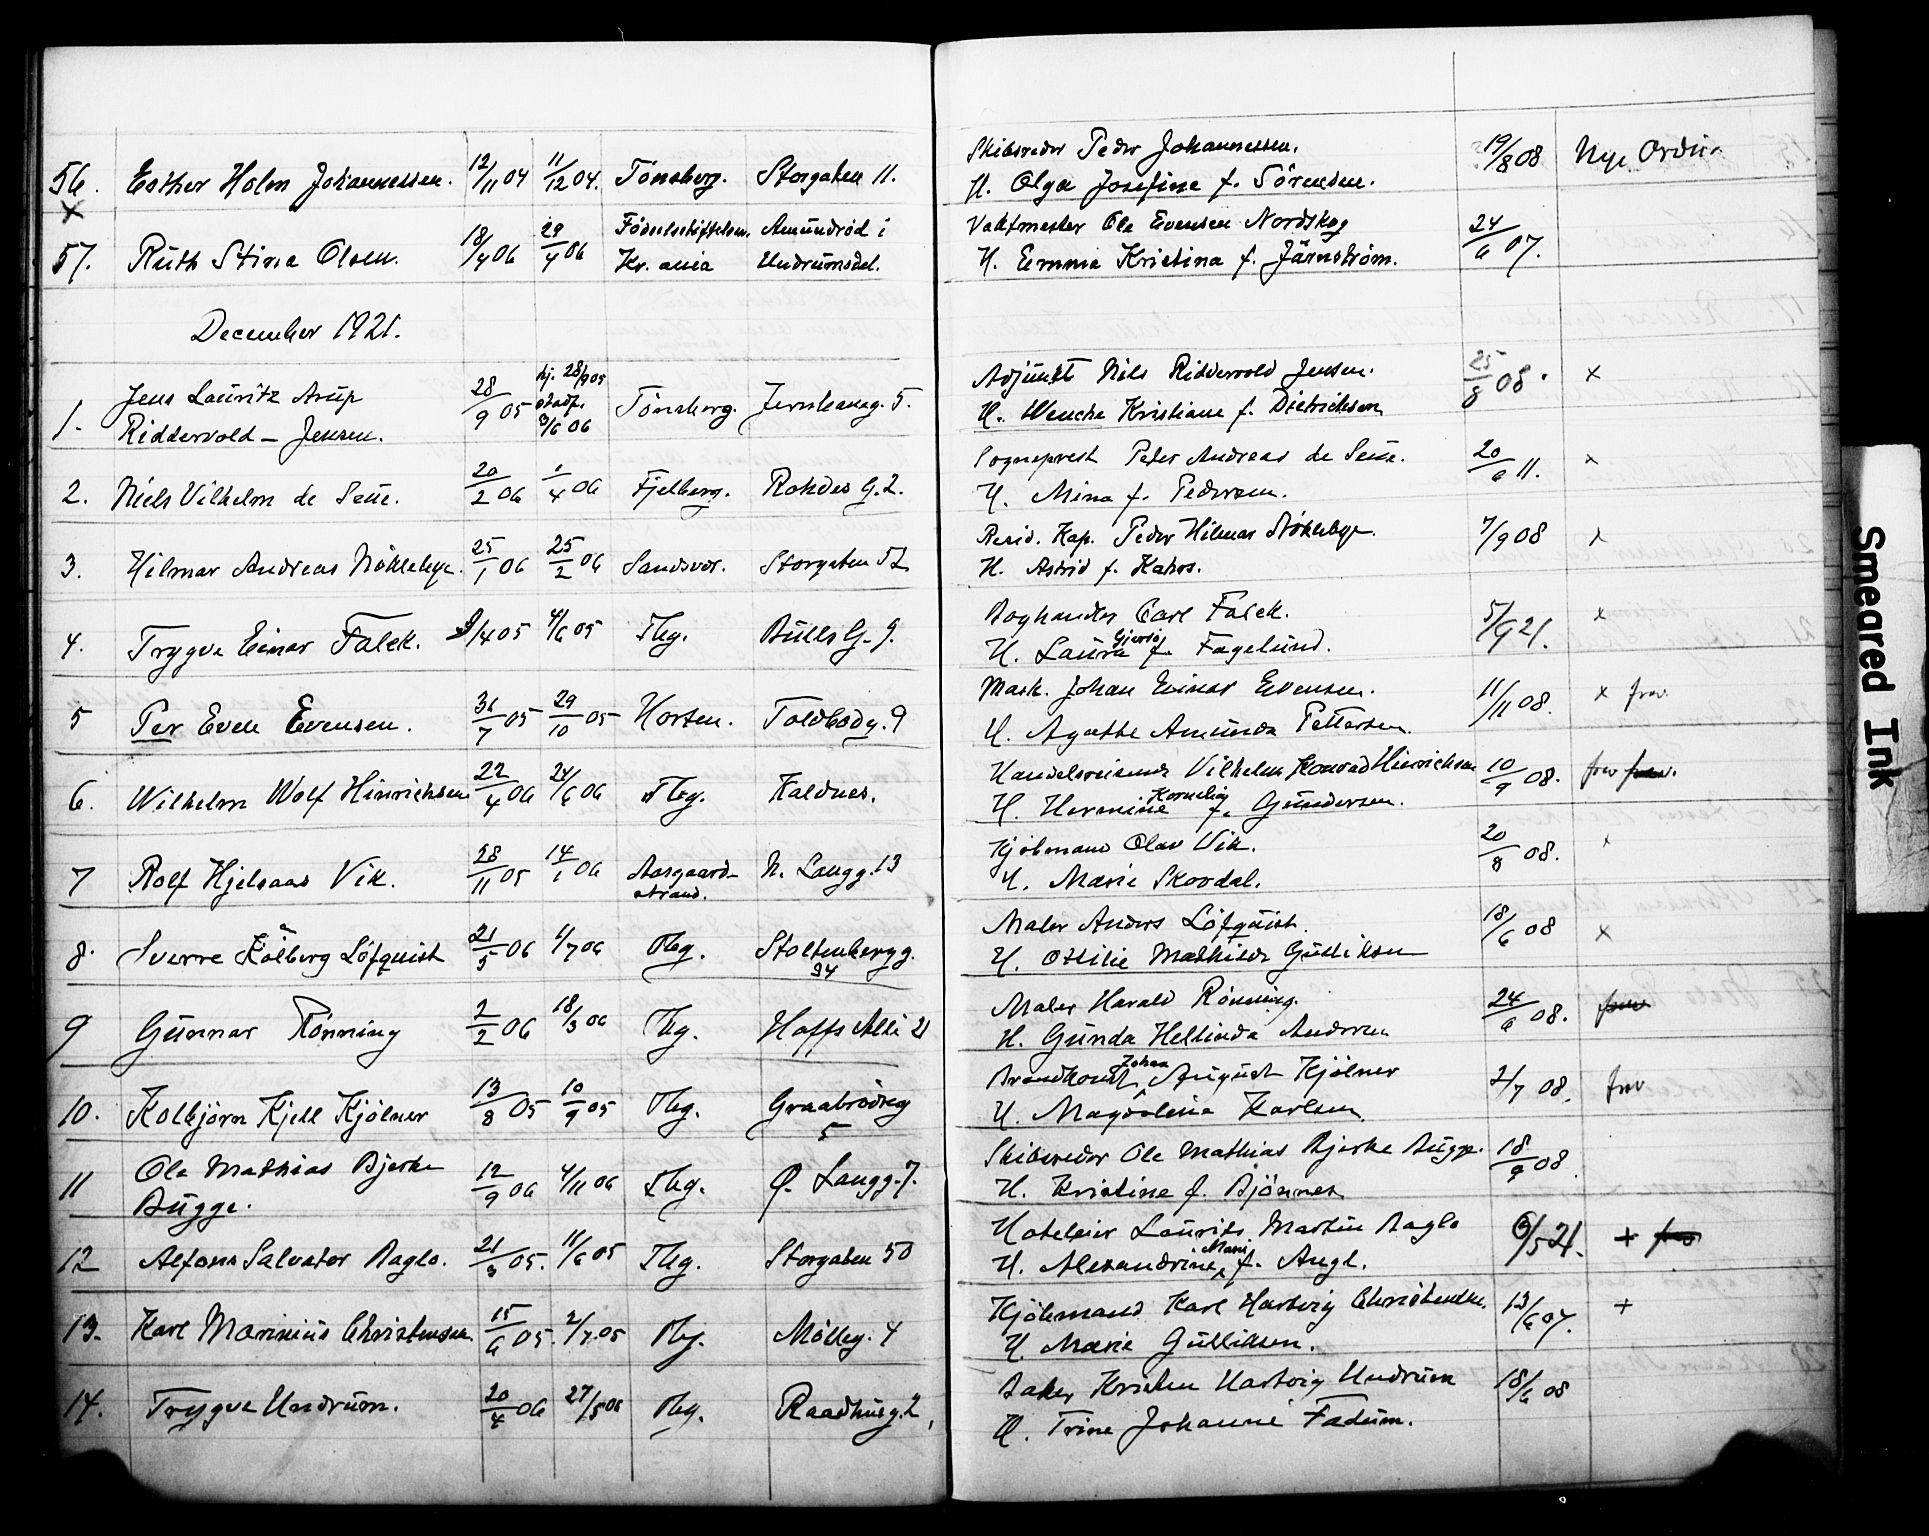 56. Esther Holm Johannessen. 12/11 04 11/12 04. Tönsberg. Storgaten 11. Skibsreder Peder Johannessen. 19/8 08 Nye Ordin
x H. Olga Josefine f. Sörensen.
57. Ruth Stina Olsen. 18/4 06 29/4 06 Födselsstiftelsen, Amundröd i Vaktmester Ole Evensen Nordskog 24/6 07.
Kr. ania Undrumsdal. H. Emma Kristina f. Järnström.
December 1921.
1. Jens Lauritz Arup 28/9 05 hj. 28/9 05 Tönsberg. Jernbaneg. 5. Adjunkt Nils Riddervold Jensen. 25/8 08. x
Riddervold-Jensen. stadf. 8/6 06 H. Wenche Kristiane f. Dietrichson
2. Niels Vilhelm de Seue. 20/2 06 1/4 06 Fjelberg. Rohdes G. 2. Sogneprest Peter Andreas de Seue. 20/6 11. x
H. Mina f. Pedersen.
3. Hilmar Andreas Nöklebye. 25/1 06 25/2 06 Sandsvær. Storgaten 52 Resid. Kap. Peder Hilmar Nöklebye. 7/9 08 x
H. Astrid f. Kahrs.
4. Trygve Einar Falck. 9/4 05 4/6 05 Tbg. Bulls G. 9. Boghandler Carl Falck. 5/9 21. x
H. Laura Gjersö f. Fagelund.
5 Per Even Evensen. 31/7 05 29/10 05 Horten. Toldbodg. 9 Mask. Johan Einar Evensen. 11/11 08. x frav.
H. Agathe Amunda Pettersen.
6. Wilhelm Wolf Hinrichsen 22/4 06 24/6 06 Tbg. Kaldnes. Handelsreisende Vilhelm Konrad Hinrichsen 10/9 08. frav frav.
H. Hermine Kornelia f. Gundersen.
7 Rolf Hjelsaas Vik. 28/11 05 14/1 06 Aasgaard- N. Langg. 13 Kjöbmand Olav Vik. 20/8 08. x
strand. H. Marie Skovdal.
8. Sverre Kolberg Löfquist 21/5 06 1/7 06 Tbg. Stoltenbergg. Maler Anders Löfquist. 18/6 08 x
34 H. Ottilie Mathilde Gulliksen
9 Gunnar Rönning 2/2 06 18/3 06 Tbg. Hoffs Allé 21 Maler Harald Rönning. 24/6 08. frav
H. Gunda Hellinda Andersen
10. Kolbjörn Kjell Kjölner 13/8 05 10/9 05 Tbg. Graabrödreg Brandkonst. Johan August Kjölner 2/7 08. frav
5 H. Magdalena Karlsen
11 Ole Mathias Bjerke 12/9 06 4/11 06 Tbg. Ø. Langg. 7. Skibsreder Ole Mathias Bjerke Bugge. 18/9 08
Bugge. H. Kristine f. Bjönnes
12 Alfons Salvator Baglo. 21/3 05. 11/6 05 Tbg. Storgaten 50 Hoteleier Laurits Martin Baglo 6/5 21. + frav
H. Alexandrine Marie f. Angl.
13. Karl Marinius Christensen. 15/6 05. 2/7 05 Tbg. Mölleg. 4 Kjöbmand Karl Hartvig Christensen. 13/6 07. +
H. Marie Gulliksen.
14. Trygve Undrum. 20/4 06 27/5 06 Tbg. Raadhusg. 2, Baker Kristen Hartvig Undrum 18/6 08
H. Trine Johanne Fadum.
Smeared Ink